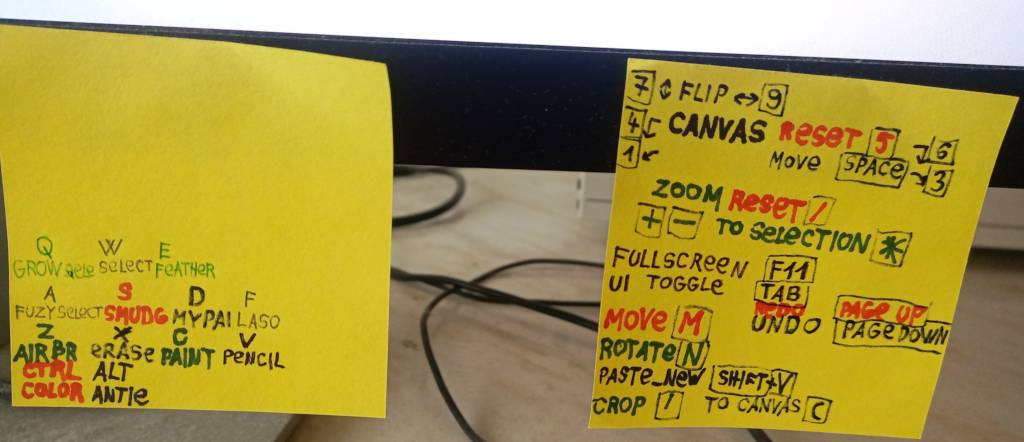 Q W E
GROW sele select FeATHeR
A S D F
FUZYSELECT SMUDG MYPAI LASO
Z X C V
AIRBR eRASe PAINT PeNCIL
CTRL ALT
COLOR ANTIe
7 ↕ FLIP ↔ 9
4 CANVAS ReSeT 5 6
1 MOVe SPACe 3
ZOOM ReSeT /
+ - TO SeLeCTION *
FULLSCReeN F11
UI TOGGLe TAB
ReDO PAGE UP
MOVe M UNDO PAGeDOWN
ROTATe N
PASTE_NeW SHIFT+V
CROP / TO CANVAS C